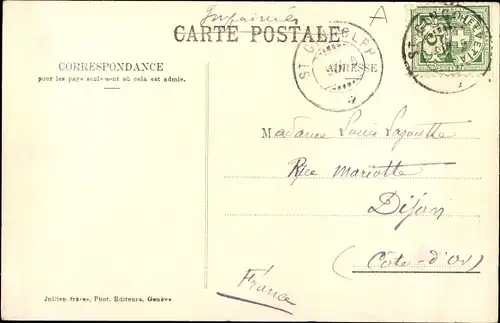 Imprimés
A
CARTE POSTALE
CORRESPONDANCE
pour les pays seulement où cela est admis.
ADRESSE
ST. GINGOLPH
HELVETIA
Madame Louis Lajoutte
Rue Mariotte
Dijon
(Côte-d'Or)
France
Jullien frères, Phot. Editeurs, Genève